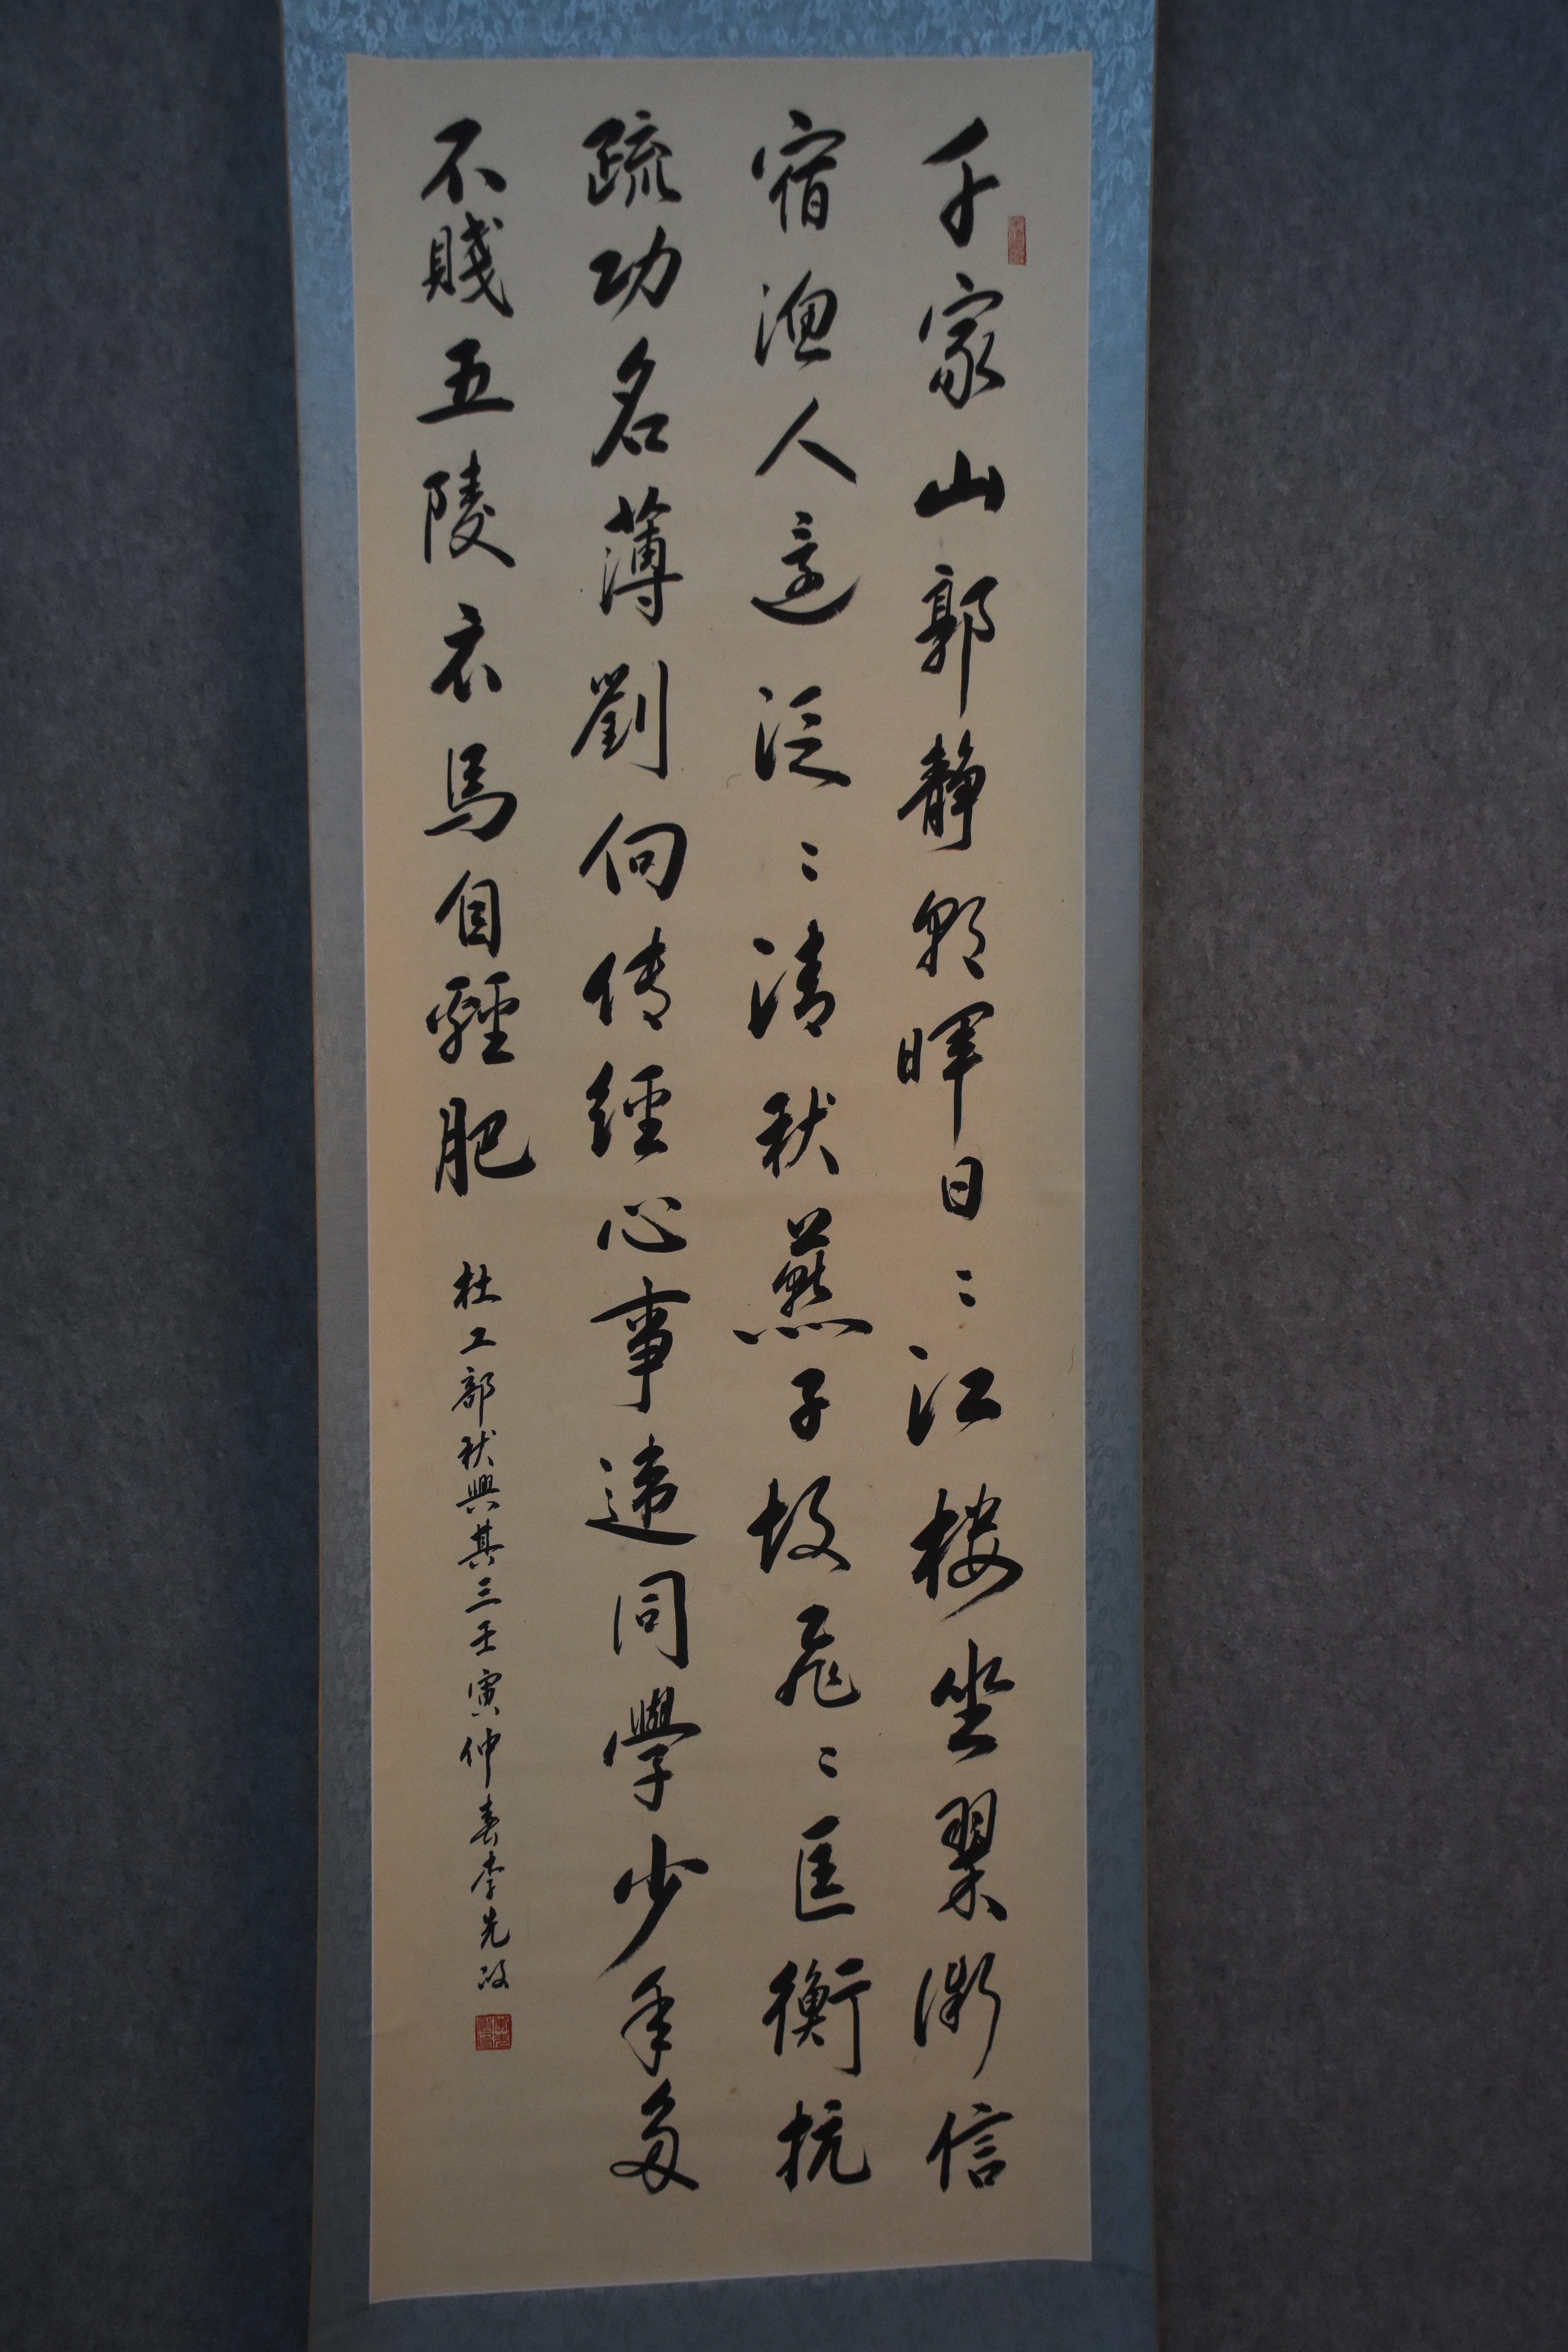 千家山郭靜朝暉日〻江樓坐翠微信
宿漁人還泛〻清秋燕子故飛〻匡衡抗
疏功名薄劉向傳經心事違同學少年多
不賤五陵衣馬自輕肥
杜工部秋興其三壬寅仲春李先